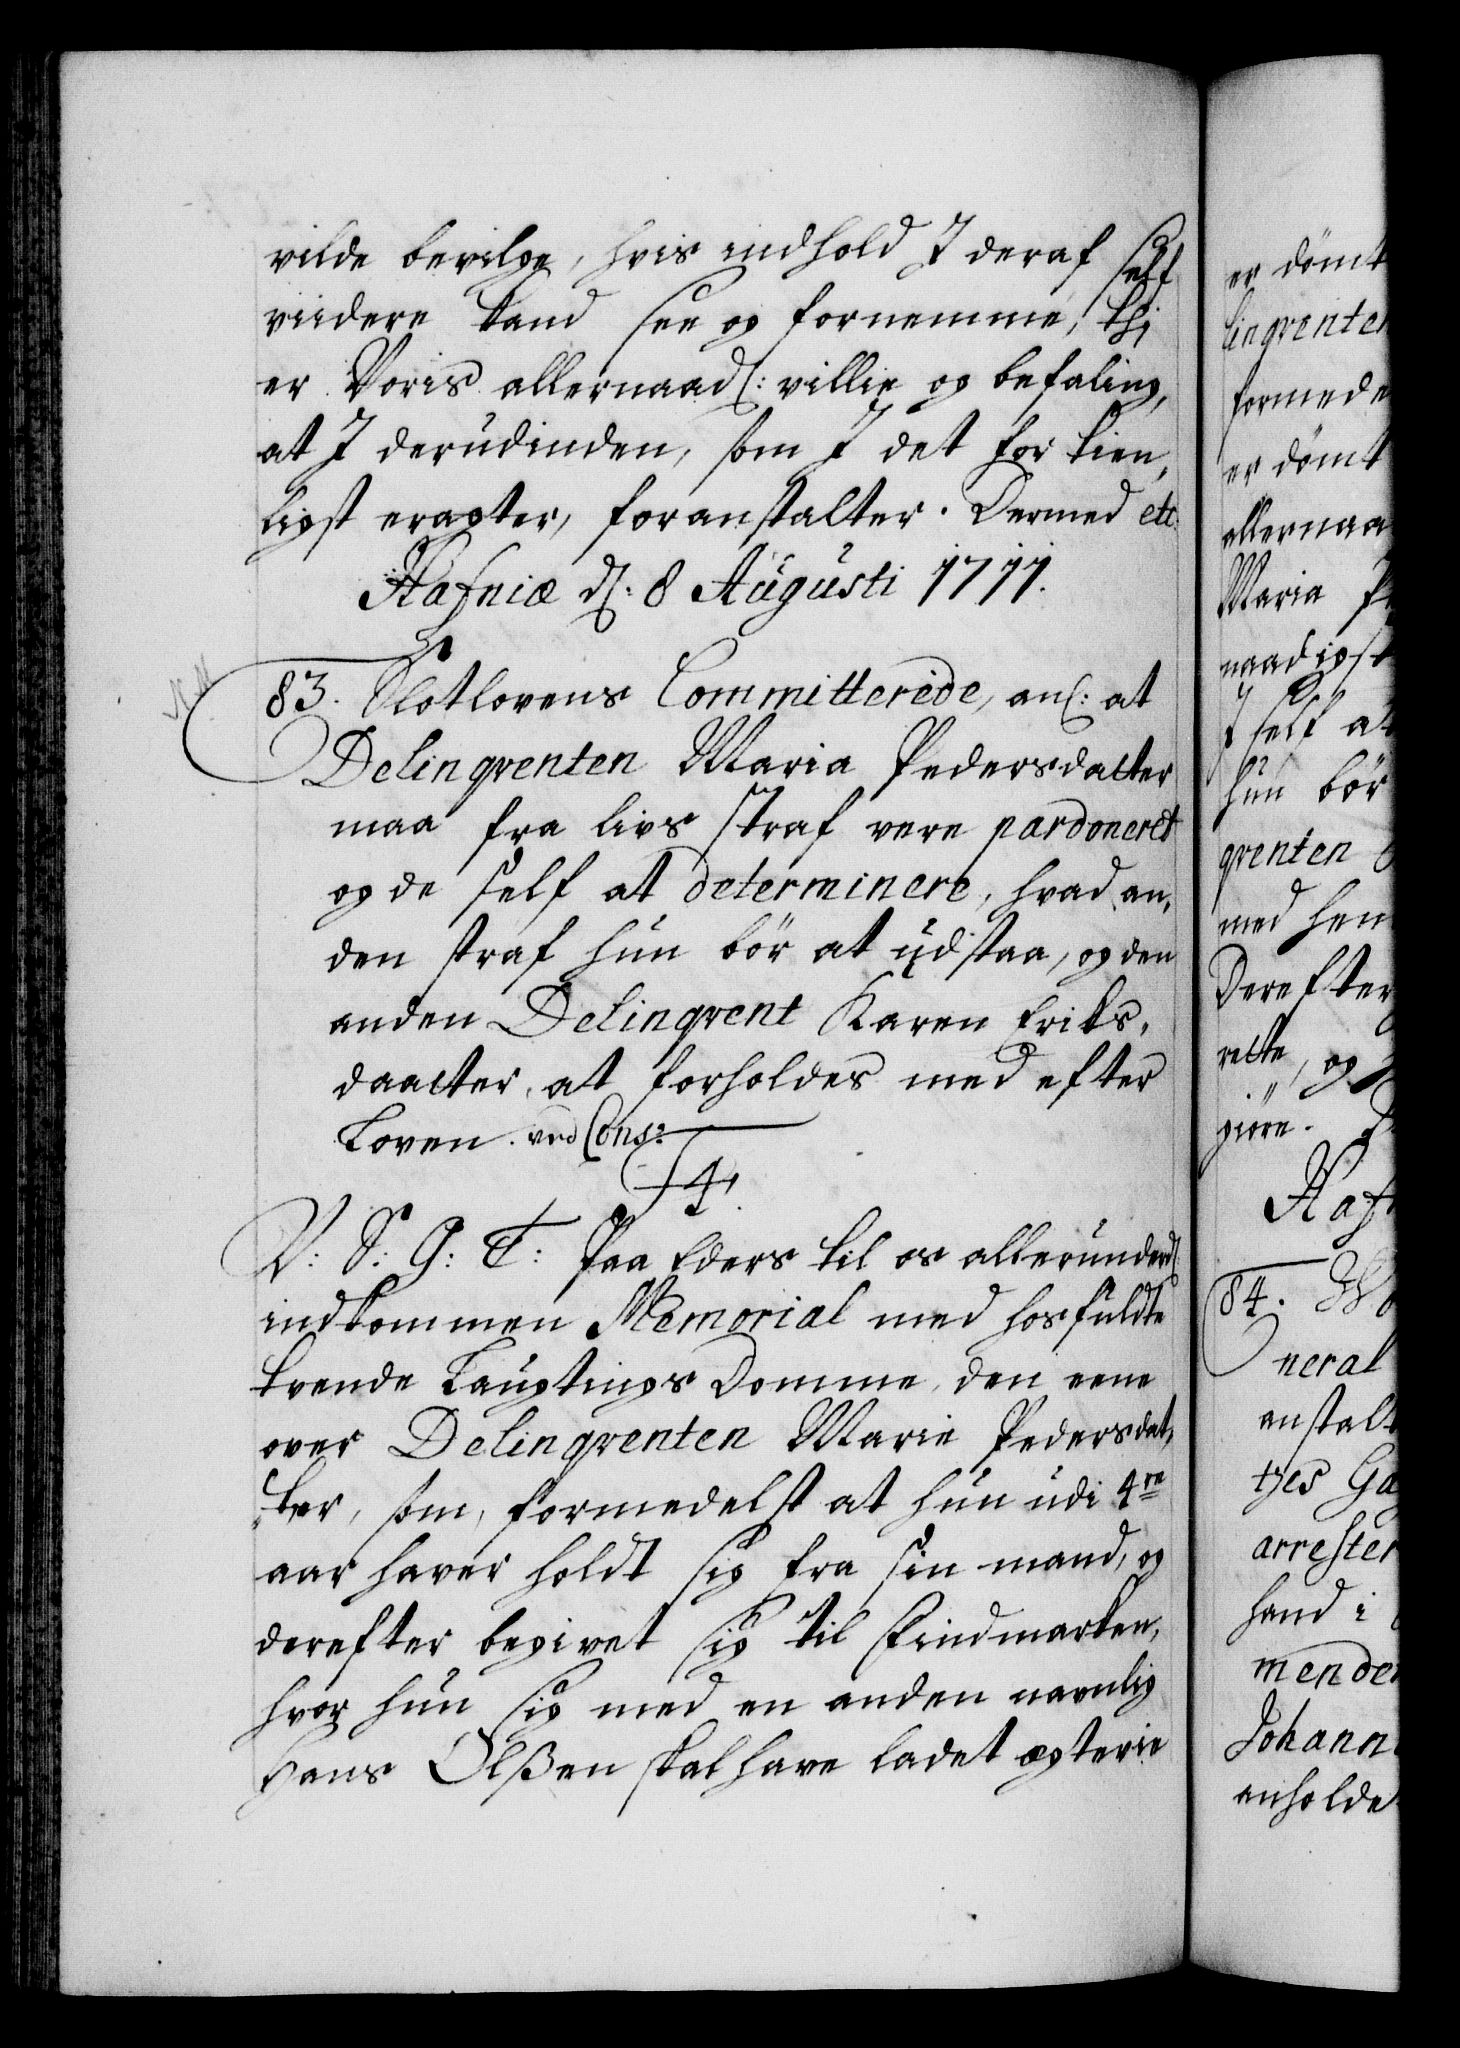 vilde bevilge, hvis indhold I deraf self
viidere kand see og fornemme, thj
er Voris allernaad: villie og befaling,
at I derudinden, som I det for tien,
ligst eragter, foranstalter. Dermed etc.
Hafniæ d: 8 Augusti 1711.
83. Slotlovens Committerede, anl: at
Delinqventen Maria Pedersdatter
maa fra livs straf vere pardoneret
og de self at determinere, hvad an,
den straf hun bör at udstaa, og den
anden Delinqvent Karen Eriks,
daatter at forholdes med efter
Loven. ved Cons:
F4
V: S: G: T: Paa Eders til os allerunderd:
indkommen Memorial med hosfuldte
tvende Laugtings Domme, den eene
over Delinqventen Marie Pedersdat,
ter, som, formedelst at hun udi 4re
aar haver holdt sig fra sin mand, og
derefter begivet sig til Findmarken,
hvor hun sig med en anden navnlig
Hans Olßen skal have ladet egtevie
er dömt
linqventen
formede
er dömt
allernaa
Maria Pe
naadigst
I self at
hun bör
qventen
med hen
Derefter
rette, og
giöre.
Haf
84.
neral
anstalt
tjes Ga
arrester
hand i
menden
Johann
anholde